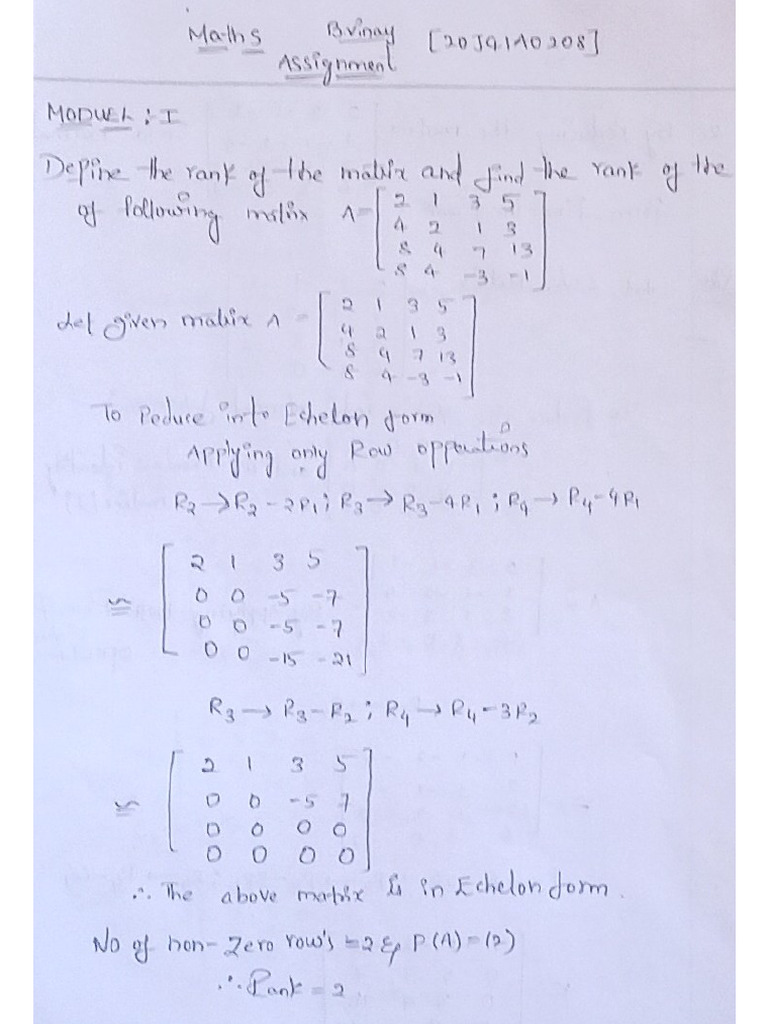 Maths Bvinay [20J91A0208]
Assignment
MODUEL : I
Define the rank of the matrix and find the rank of the
of following matrix A = [ 2 1 3 5
4 2 1 3
8 4 7 13
8 4 -3 -1 ]
Let given matrix A = [ 2 1 3 5
4 2 1 3
8 4 7 13
8 4 -3 -1 ]
To Reduce into Echelon form
Applying only Row opperations
R2 → R2 - 2R1 ; R3 → R3 - 4R1 ; R4 → R4 - 4R1
≃ [ 2 1 3 5
0 0 -5 -7
0 0 -5 -7
0 0 -15 -21 ]
R3 → R3 - R2 ; R4 → R4 - 3R2
≃ [ 2 1 3 5
0 0 -5 7
0 0 0 0
0 0 0 0 ]
∴ The above matrix is in Echelon form.
No of non-zero row's = 2 & P(A) = (2)
∴ Rank = 2.